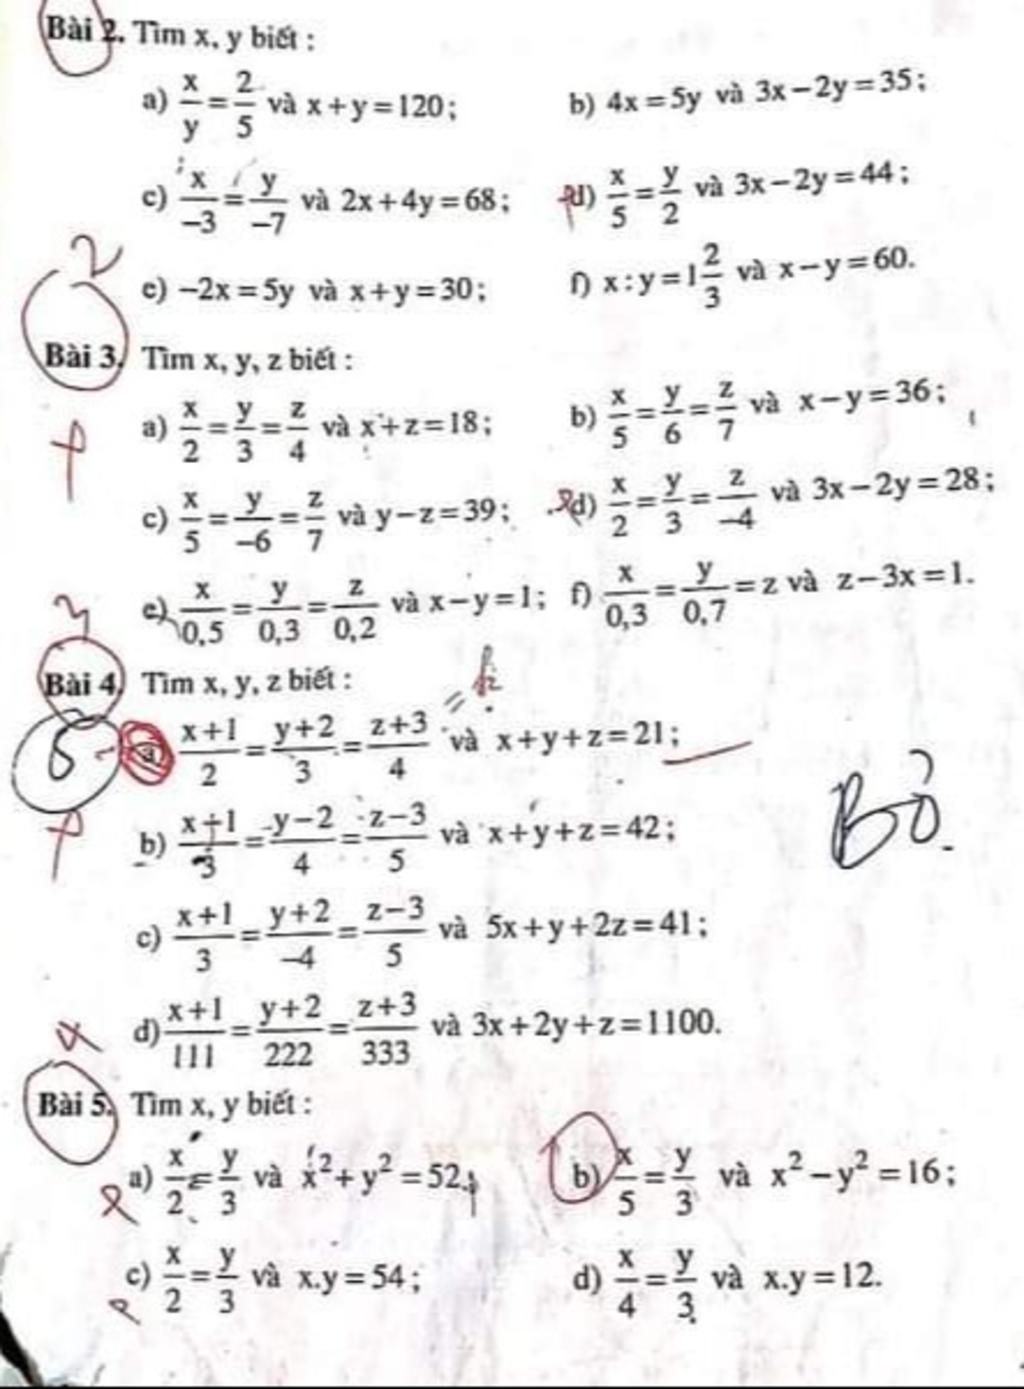 Bài 2. Tìm x, y biết :
a) x/y = 2/5 và x + y = 120; b) 4x = 5y và 3x − 2y = 35;
c) x/−3 = y/−7 và 2x + 4y = 68; d) x/5 = y/2 và 3x − 2y = 44;
2
e) −2x = 5y và x + y = 30; f) x : y = 1 2/3 và x − y = 60.
Bài 3. Tìm x, y, z biết :
a) x/2 = y/3 = z/4 và x + z = 18; b) x/5 = y/6 = z/7 và x − y = 36;
c) x/5 = y/−6 = z/7 và y − z = 39; d) x/2 = y/3 = z/−4 và 3x − 2y = 28;
e) x/0,5 = y/0,3 = z/0,2 và x − y = 1; f) x/0,3 = y/0,7 = z và z − 3x = 1.
3
Bài 4. Tìm x, y, z biết :
a) x+1/2 = y+2/3 = z+3/4 và x + y + z = 21;
Bỏ.
b) x+1/3 = y−2/4 = z−3/5 và x + y + z = 42;
c) x+1/3 = y+2/−4 = z−3/5 và 5x + y + 2z = 41;
d) x+1/111 = y+2/222 = z+3/333 và 3x + 2y + z = 1100.
Bài 5. Tìm x, y biết :
a) x/2 = y/3 và x² + y² = 52; b) x/5 = y/3 và x² − y² = 16;
c) x/2 = y/3 và x.y = 54; d) x/4 = y/3 và x.y = 12.